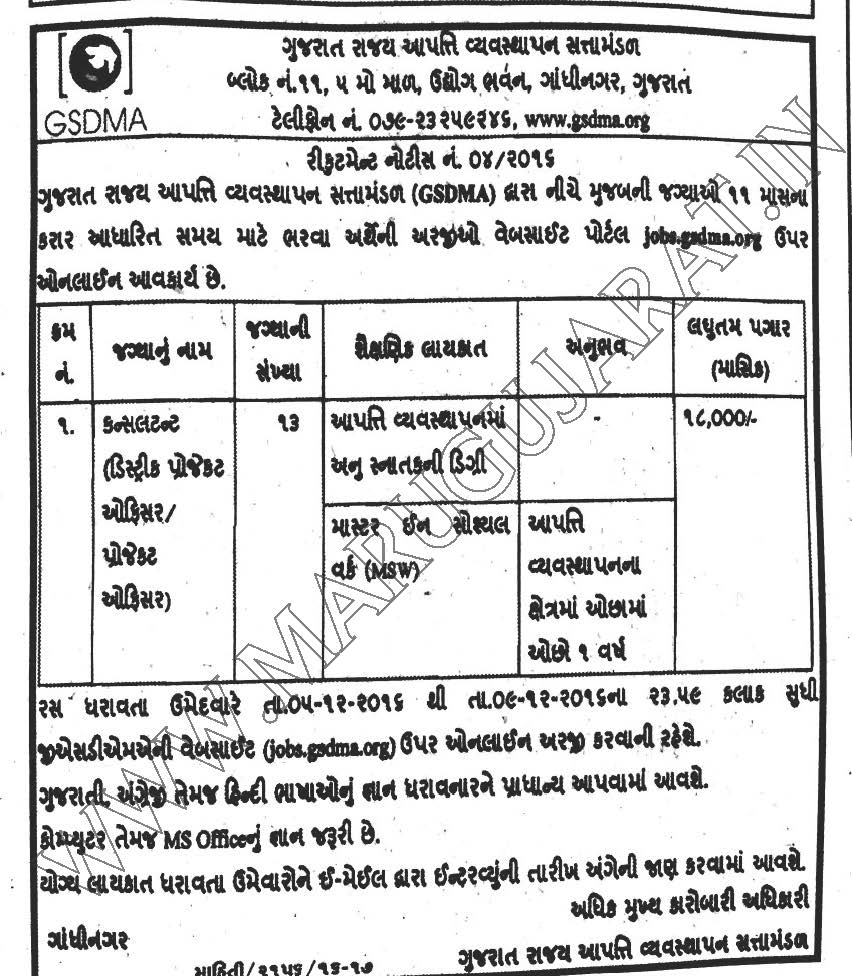 ગુજરાત રાજ્ય આપત્તિ વ્યવસ્થાપન સત્તામંડળ
બ્લોક નં.૧૧, ૫ મો માળ, ઉદ્યોગ ભવન, ગાંધીનગર, ગુજરાત
GSDMA
ટેલીફોન નં. ૦૭૯-૨૩૨૫૯૨૪૬, www.gsdma.org
રીક્રુટમેન્ટ નોટીસ નં. ૦૪/૨૦૧૬
ગુજરાત રાજ્ય આપત્તિ વ્યવસ્થાપન સત્તામંડળ (GSDMA) દ્વારા નીચે મુજબની જગ્યાઓ ૧૧ માસના
કરાર આધારિત સમય માટે ભરવા અર્થેની અરજીઓ વેબસાઈટ પોર્ટલ jobs.gsdma.org ઉપર
ઓનલાઈન આવકાર્ય છે.
ક્રમ નં.
જગ્યાનું નામ
જગ્યાની સંખ્યા
શૈક્ષણિક લાયકાત
અનુભવ
લઘુતમ પગાર (માસિક)
૧.
કન્સલટન્ટ
(ડિસ્ટ્રીક પ્રોજેક્ટ
ઓફિસર/
પ્રોજેક્ટ
ઓફિસર)
૧૩
આપત્તિ વ્યવસ્થાપનમાં
અનુ સ્નાતકની ડિગ્રી
-
૧૮,૦૦૦/-
માસ્ટર ઈન સોશ્યલ
વર્ક (MSW)
આપત્તિ
વ્યવસ્થાપનના
ક્ષેત્રમાં ઓછામાં
ઓછો ૧ વર્ષ
રસ ધરાવતા ઉમેદવારે તા.૦૫-૧૨-૨૦૧૬ થી તા.૦૯-૧૨-૨૦૧૬ના ૨૩.૫૯ કલાક સુધી
જીએસડીએમએની વેબસાઈટ (jobs.gsdma.org) ઉપર ઓનલાઈન અરજી કરવાની રહેશે.
ગુજરાતી, અંગ્રેજી તેમજ હિન્દી ભાષાઓનું જ્ઞાન ધરાવનારને પ્રાધાન્ય આપવામાં આવશે.
કોમ્પ્યુટર તેમજ MS Officeનું જ્ઞાન જરૂરી છે.
યોગ્ય લાયકાત ધરાવતા ઉમેવારોને ઈ-મેઈલ દ્વારા ઈન્ટરવ્યુંની તારીખ અંગેની જાણ કરવામાં આવશે.
અધિક મુખ્ય કારોબારી અધિકારી
ગાંધીનગર
ગુજરાત રાજ્ય આપત્તિ વ્યવસ્થાપન સત્તામંડળ
માહિતી/૨૧૫૬/૧૬-૧૭
WWW.MARUGUJARAT.IN